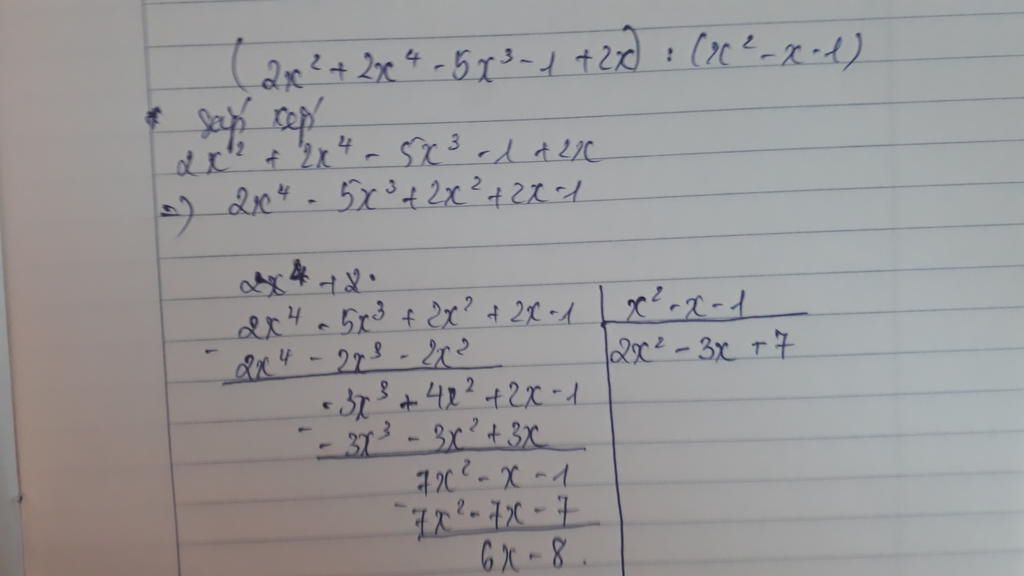 (2x² + 2x⁴ - 5x³ - 1 + 2x) : (x² - x - 1)
* sắp xếp
2x² + 2x⁴ - 5x³ - 1 + 2x
=> 2x⁴ - 5x³ + 2x² + 2x - 1
2x⁴ + 2.
2x⁴ - 5x³ + 2x² + 2x - 1 | x² - x - 1
- 2x⁴ - 2x³ - 2x² | 2x² - 3x + 7
- 3x³ + 4x² + 2x - 1
- - 3x³ - 3x² + 3x
7x² - x - 1
- 7x² - 7x - 7
6x - 8.